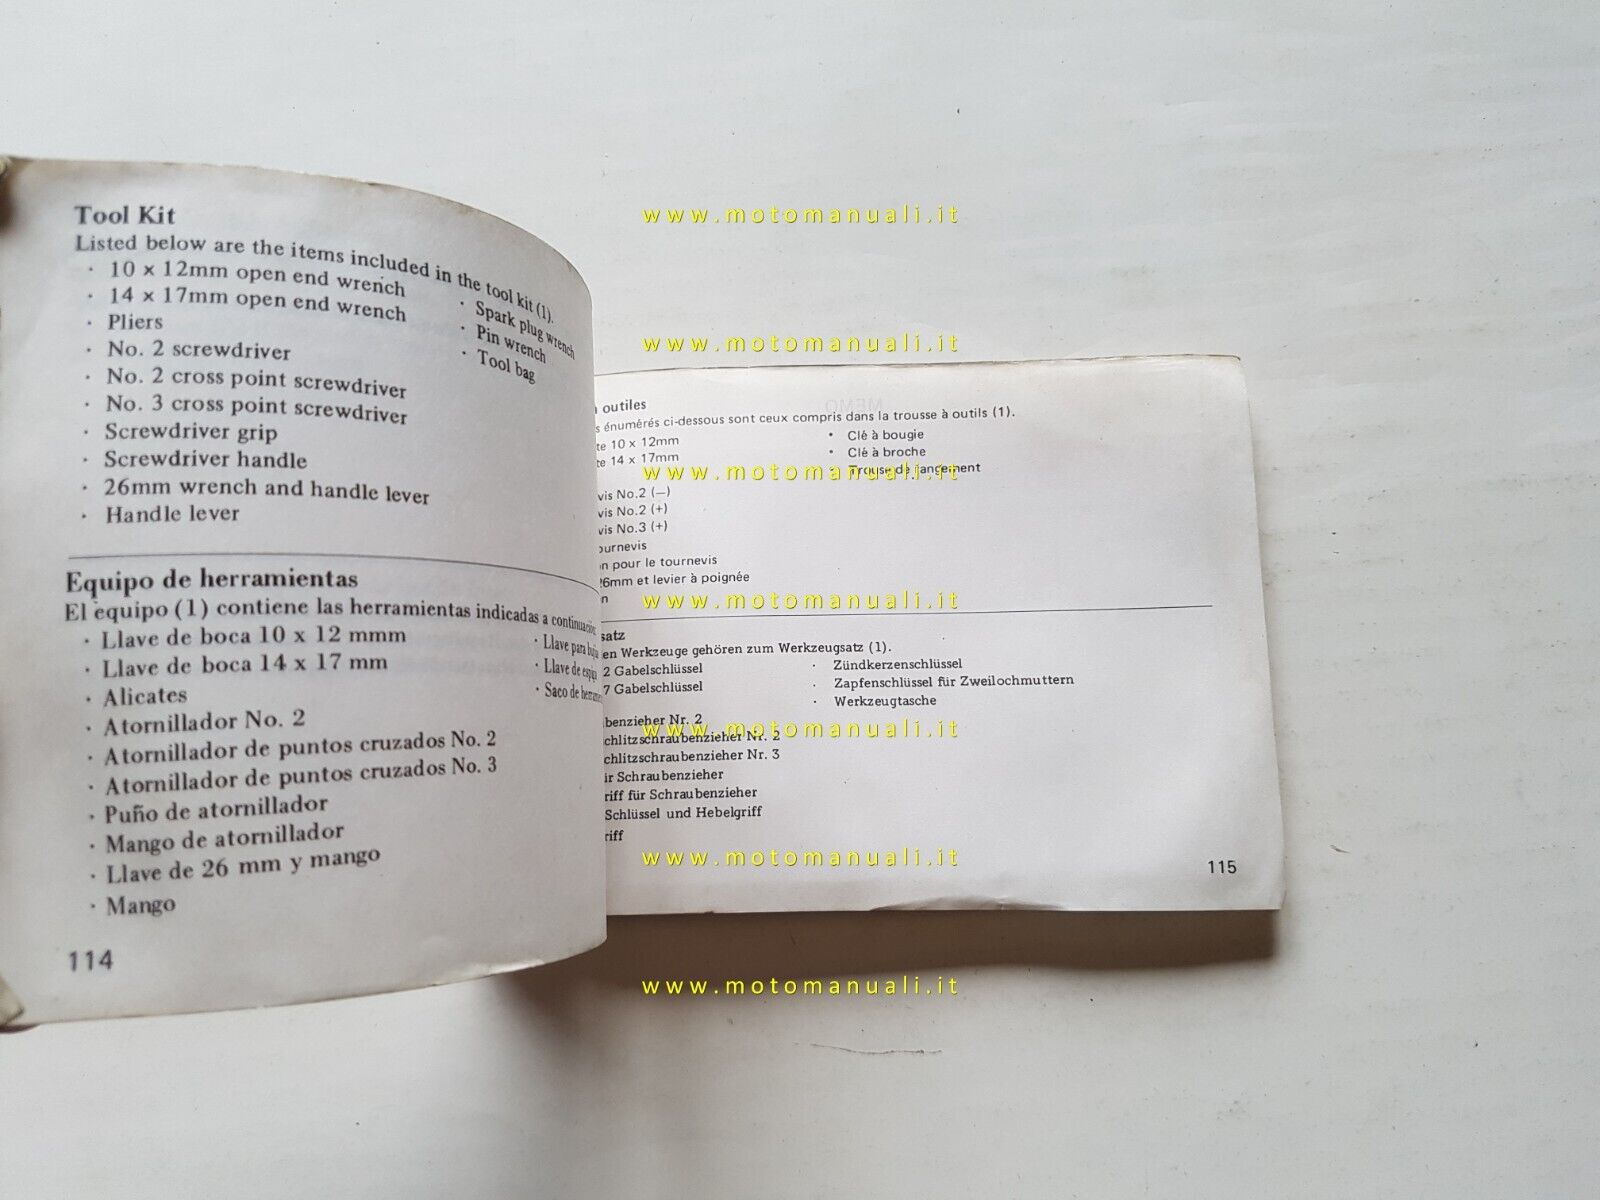 Tool Kit
Listed below are the items included in the tool kit (1).
· 10 x 12mm open end wrench
· 14 x 17mm open end wrench
· Pliers
· No. 2 screwdriver
· No. 2 cross point screwdriver
· No. 3 cross point screwdriver
· Screwdriver grip
· Screwdriver handle
· 26mm wrench and handle lever
· Handle lever
· Spark plug wrench
· Pin wrench
· Tool bag
Equipo de herramientas
El equipo (1) contiene las herramientas indicadas a continuación:
· Llave de boca 10 x 12 mmm
· Llave de boca 14 x 17 mm
· Alicates
· Atornillador No. 2
· Atornillador de puntos cruzados No. 2
· Atornillador de puntos cruzados No. 3
· Puño de atornillador
· Mango de atornillador
· Llave de 26 mm y mango
· Mango
· Llave para
· Llave de
· Saco de
114
outiles
énumérés ci-dessous sont ceux compris dans la trousse à outils (1).
10 x 12mm
14 x 17mm
vis No.2 (—)
vis No.2 (+)
vis No.3 (+)
ournevis
n pour le tournevis
26mm et levier à poignée
n
• Clé à bougie
• Clé à broche
• Trousse de rangement
satz
en Werkzeuge gehören zum Werkzeugsatz (1).
2 Gabelschlüssel
7 Gabelschlüssel
benzieher Nr. 2
chlitzschraubenzieher Nr. 2
chlitzschraubenzieher Nr. 3
ür Schraubenzieher
riff für Schraubenzieher
Schlüssel und Hebelgriff
riff
· Zündkerzenschlüssel
· Zapfenschlüssel für Zweilochmuttern
· Werkzeugtasche
115
www.motomanuali.it
www.motomanuali.it
www.motomanuali.it
www.motomanuali.it
www.motomanuali.it
www.motomanuali.it
www.motomanuali.it